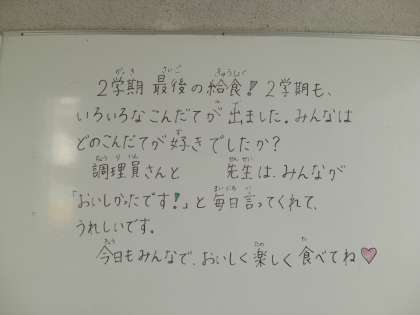 2学期 最後の給食! 2学期も、
いろいろなこんだてが 出ました。みんなは
どのこんだてが好きでしたか?
調理員さんと 先生は、みんなが
「おいしかったです!」と毎日言ってくれて、
うれしいです。
今日もみんなで、おいしく楽しく食べてね♡